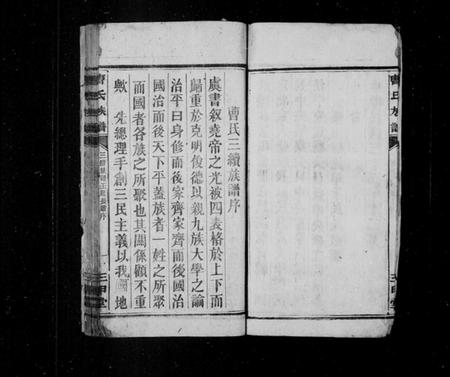 曹氏三續族譜序
虞書叙堯帝之光被四表格於上下而
歸重於克明俊德以親九族大學之論
治平曰身修而後家齊家齊而後國治
國治而後天下平蓋族者一姓之所聚
而國者各族之所聚也其關係顧不重
歟 先總理手創三民主義以我國地
曹氏族譜
曹氏族譜